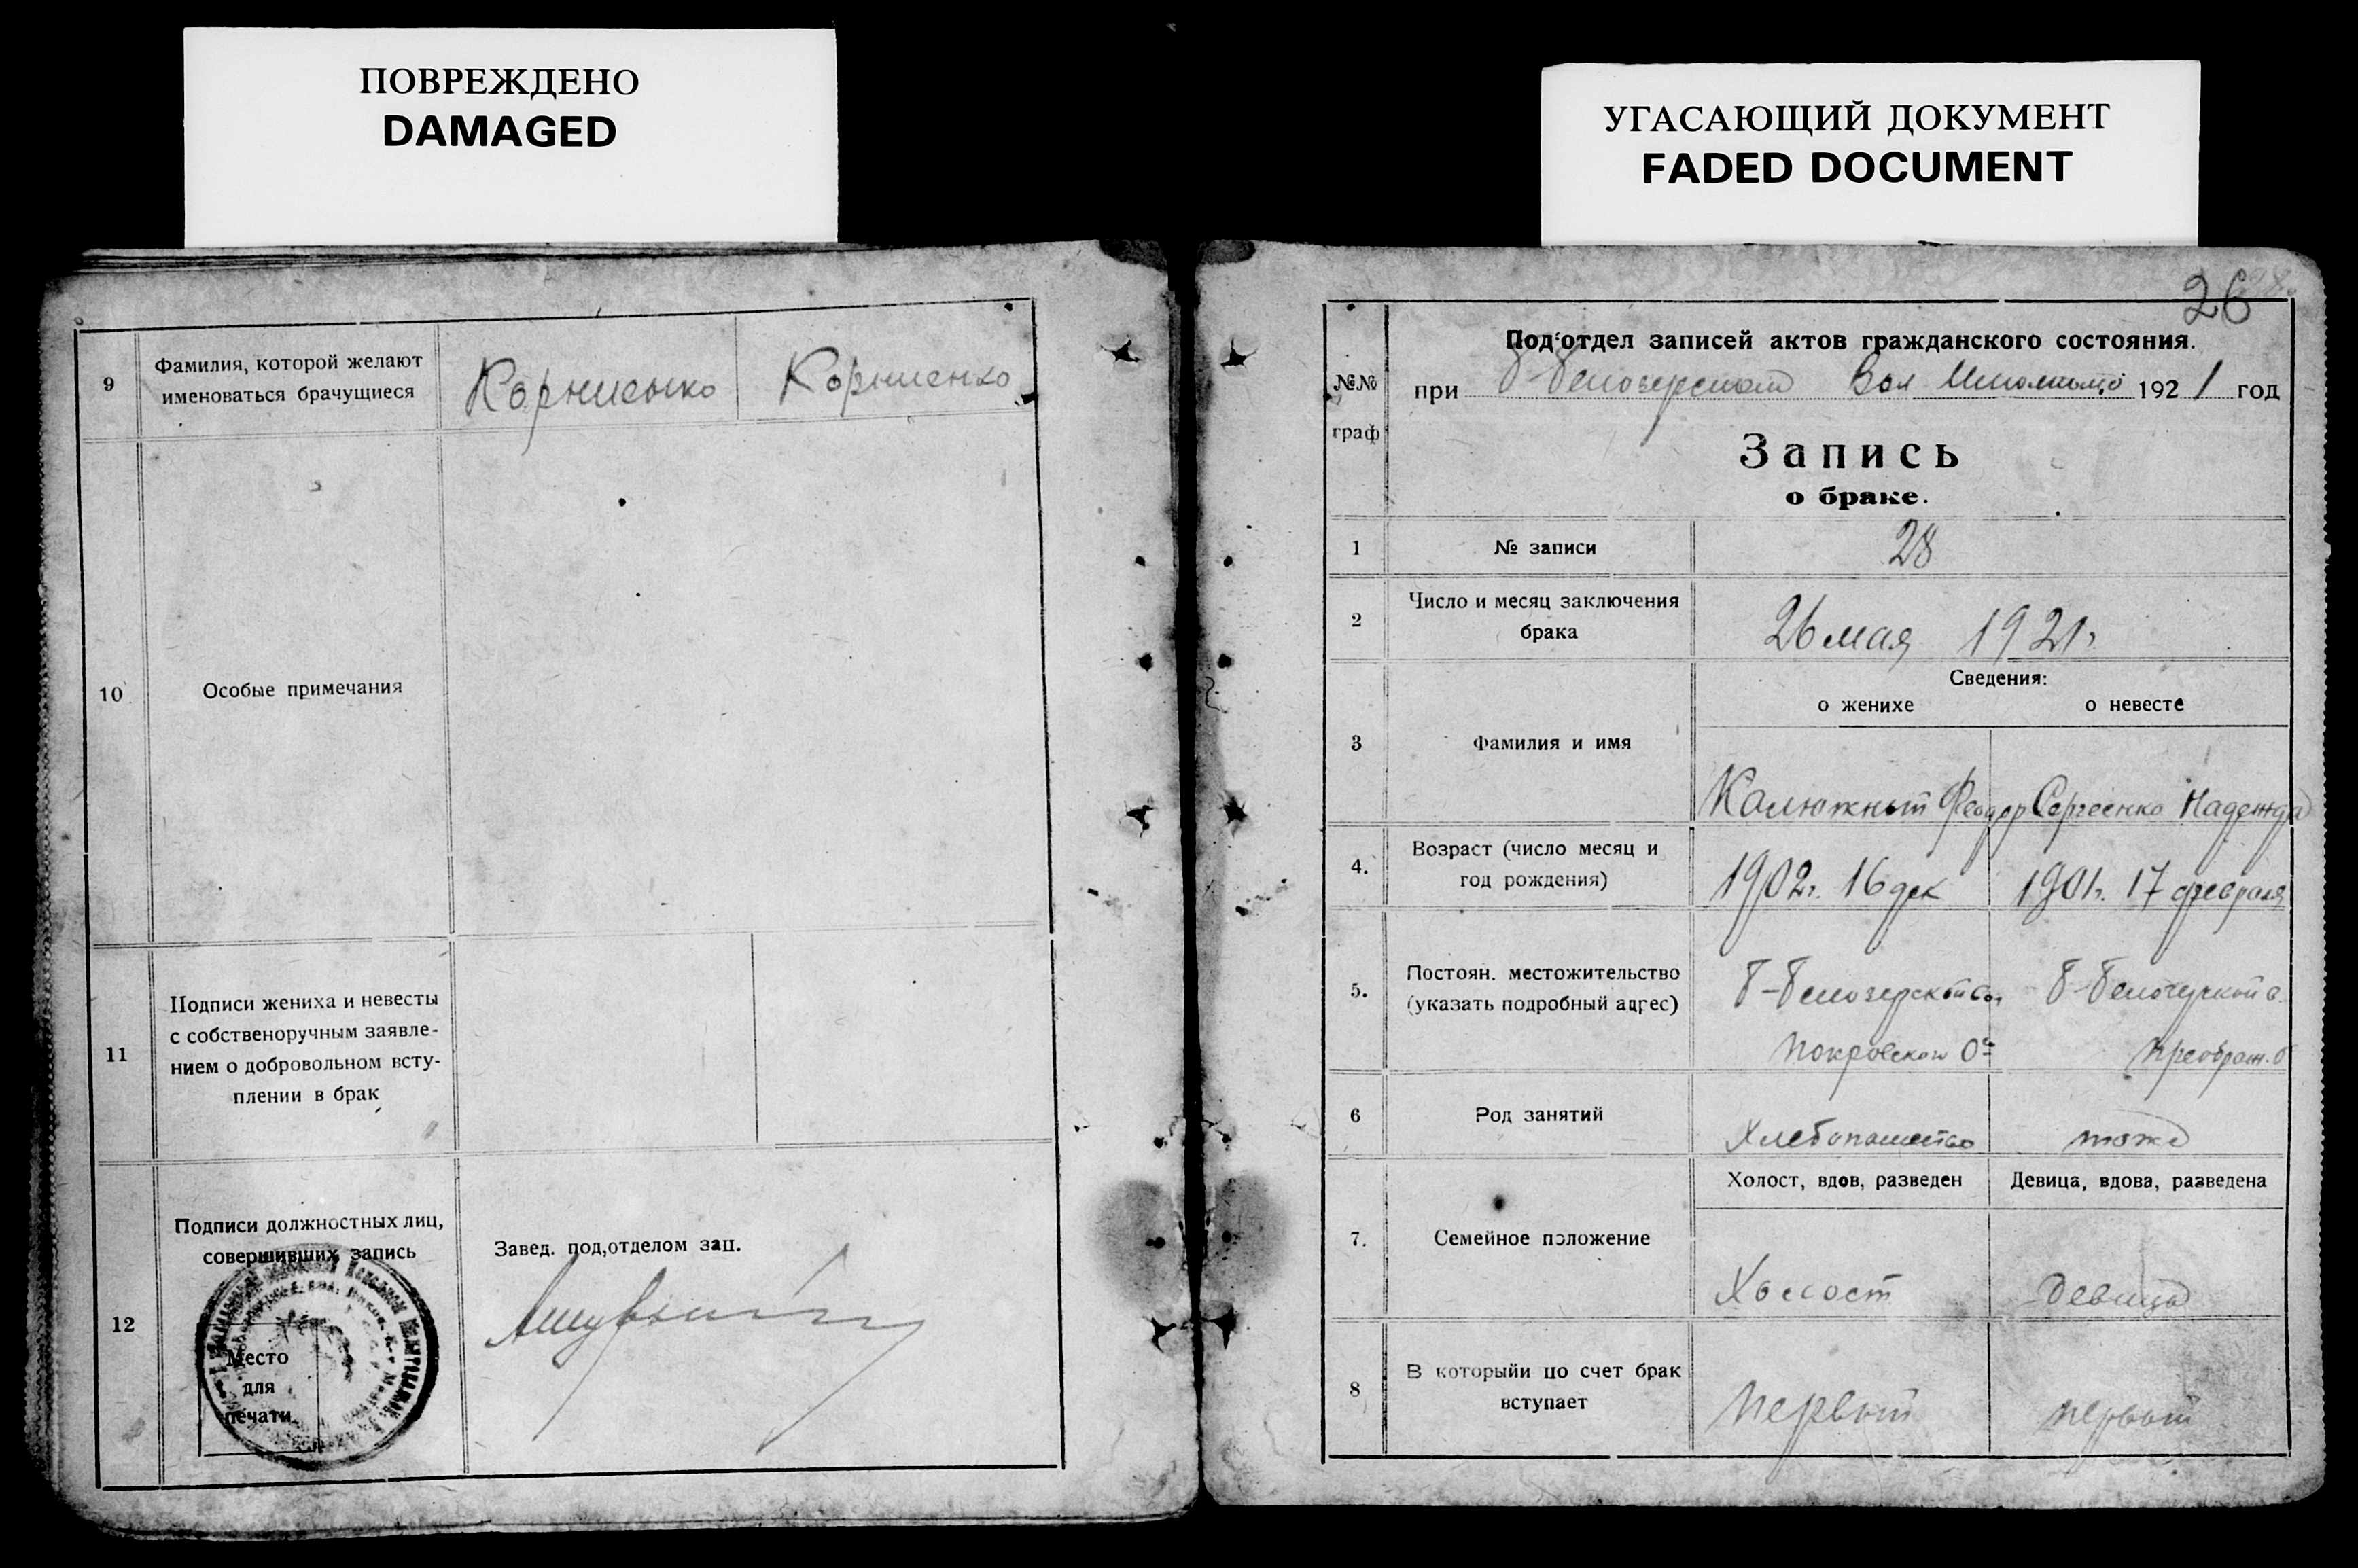 ПОВРЕЖДЕНО
DAMAGED
9
Фамилия, которой желают
именоваться брачущиеся
Корниенко
Корниенко
10
Особые примечания
11
Подписи жениха и невесты
с собственоручным заявле-
нием о добровольном всту-
плении в брак
12
Подписи должностных лиц,
совершивших запись
Место
для
печати
Завед. под,отделом зап.
УГАСАЮЩИЙ ДОКУМЕНТ
FADED DOCUMENT
26
№№
граф
Под‘отдел записей актов гражданского состояния.
при Б-Белозерском Вол 1921 год
Запись
о браке.
1
№ записи
28
2
Число и месяц заключения
брака
26 мая 1921г
Сведения:
о женихе
о невесте
3
Фамилия и имя
Калюжный Феодор
Сергеенко Надежда
4.
Возраст (число месяц и
год рождения)
1902г. 16 дек
1901г. 17 февраля
5.
Постоян. местожительство
(указать подробный адрес)
Б-Белозерской вол
Покровском О-
Б-Белозерской в.
Преображ. О
6
Род занятий
Хлебопашество
тоже
7.
Семейное положение
Холост, вдов, разведен
Девица, вдова, разведена
Холост
девица
8
В которыйи по счет брак
вступает
первый
первый